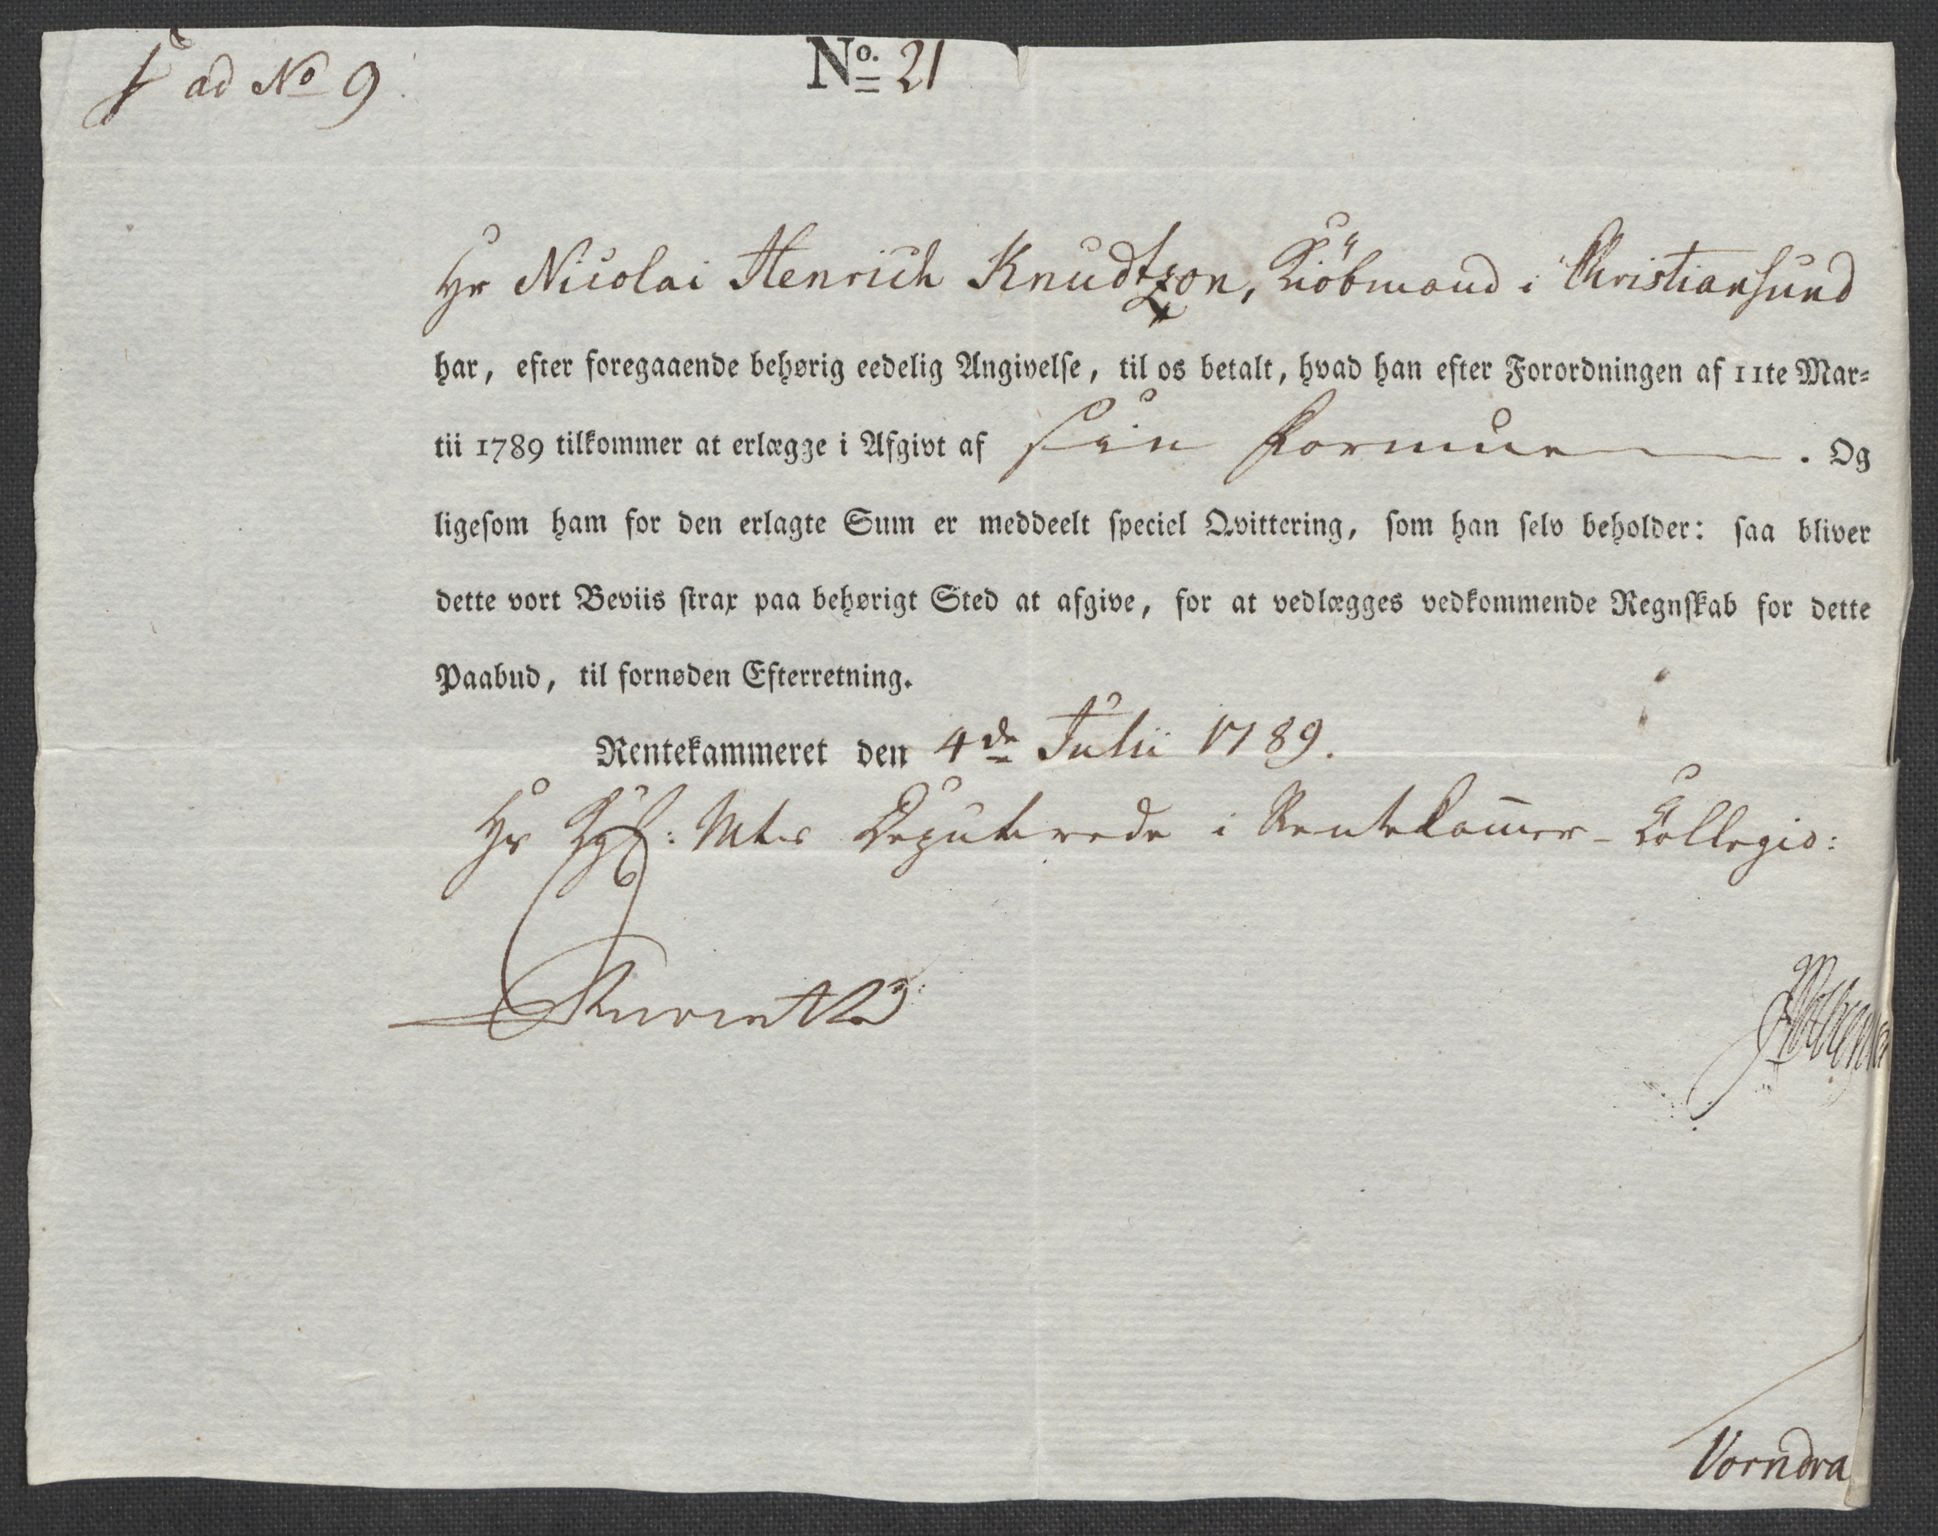 ad No 9
No. 21
Hr Nicolai Henrich Knudtzon, Kiöbmand i Christiansund
har, efter foregaaende behørig eedelig Angivelse, til os betalt, hvad han efter Forordningen af 11te Mar-
tii 1789 tilkommer at erlægge i Afgivt af sin Formue. Og
ligesom ham for den erlagte Sum er meddeelt speciel Qvittering, som han selv beholder: saa bliver
dette vort Beviis strax paa behørigt Sted at afgive, for at vedlægges vedkommende Regnskab for dette
Paabud, til fornøden Efterretning.
Rentekammeret den 4de Julii 1789.
Hr Kgl: Mts Deputerede i Rentekamer-Collegio:
Vorndra